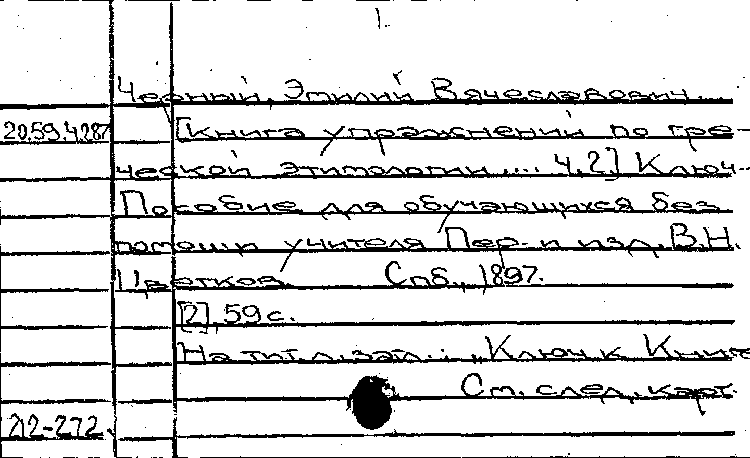 1.
Черный, Эмилий Вячеславович...
20.59.4.287 [Книга упражнений по гре-
ческой этимологии.... Ч.2.] Ключ..
Пособие для обучающихся без
помощи учителя Пер. и изд. В.Н.
Цветков. Спб., 1897.
[2], 59 с.
На тит.л. загл.: „Ключ к Книге
См. след. карт.
212-272